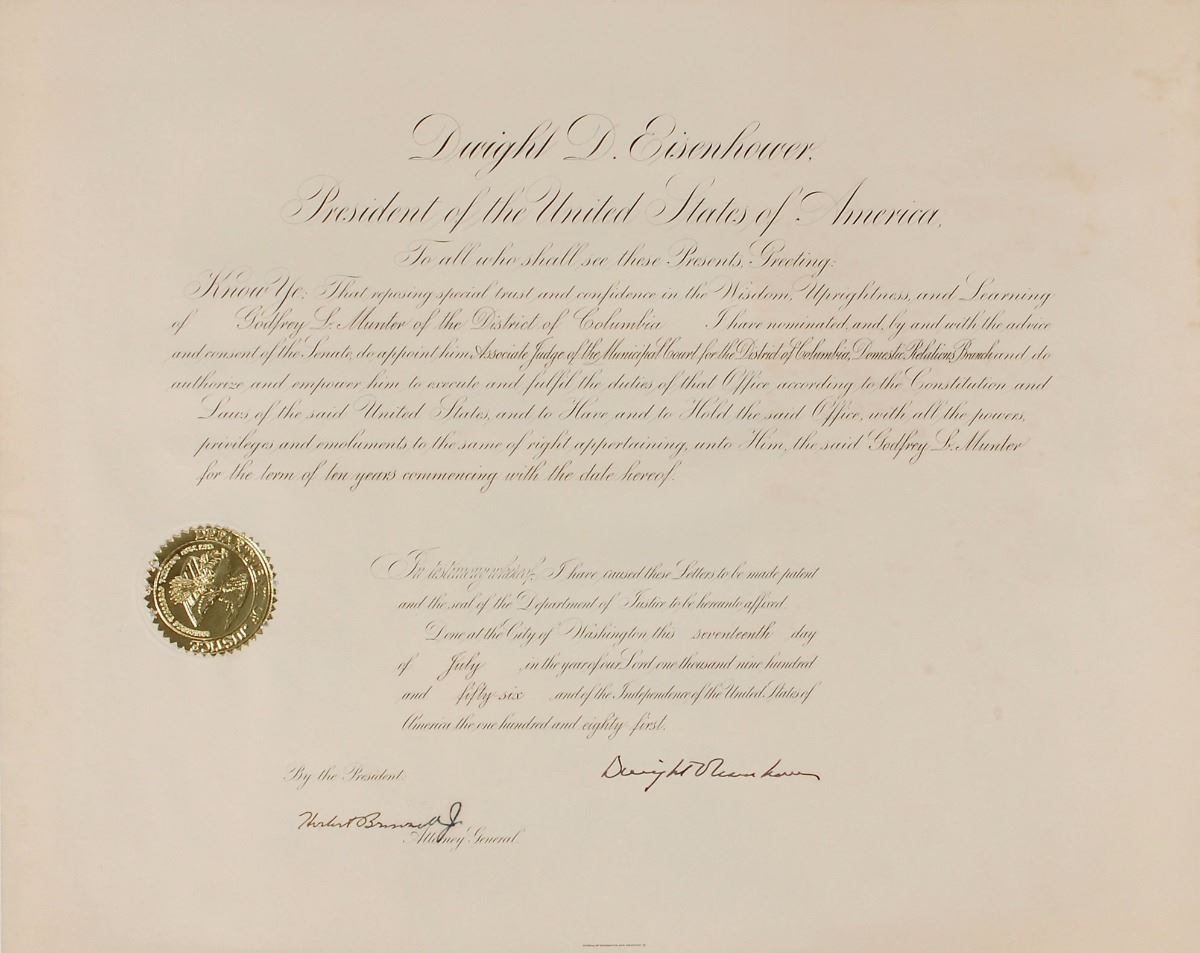 Dwight D. Eisenhower,
President of the United States of America,
To all who shall see these Presents, Greeting:
Know Ye; That reposing special trust and confidence in the Wisdom, Uprightness, and Learning
of Godfrey L. Munter of the District of Columbia I have nominated, and, by and with the advice
and consent of the Senate, do appoint him Associate Judge of the Municipal Court for the District of Columbia, Domestic Relations Branch and do
authorize and empower him to execute and fulfil the duties of that Office according to the Constitution and
Laws of the said United States, and to Have and to Hold the said Office, with all the powers,
privileges and emoluments to the same of right appertaining, unto Him, the said Godfrey L. Munter
for the term of ten years commencing with the date hereof.
In testimony whereof, I have caused these Letters to be made patent
and the seal of the Department of Justice to be hereunto affixed.
Done at the City of Washington this seventeenth day
of July in the year of our Lord one thousand nine hundred
and fifty-six and of the Independence of the United States of
America the one hundred and eighty first.
By the President:
Dwight D Eisenhower
Herbert Brownell Jr
Attorney General.